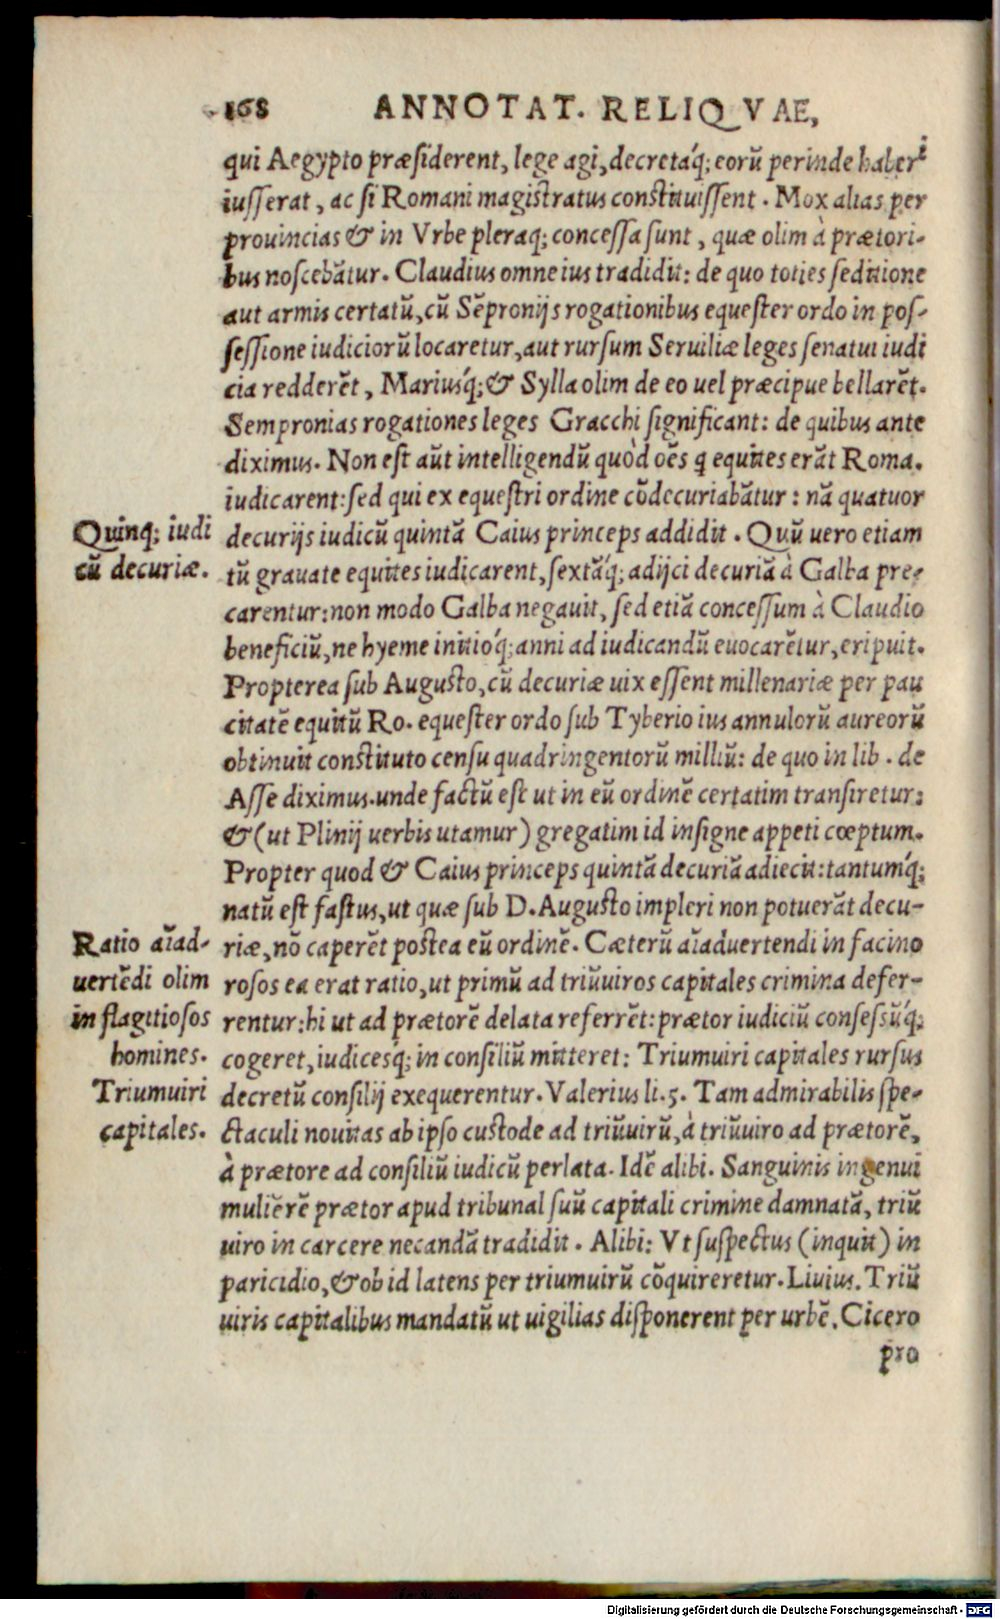 168 ANNOTAT. RELIQVAE,
qui Aegypto præsiderent, lege agi, decretáq; eorũ perinde haberi
iusserat, ac si Romani magistratus constituissent. Mox alias per
prouincias & in Vrbe pleraq; concessa sunt, quæ olim à prætori-
bus noscebãtur. Claudius omne ius tradidit: de quo toties seditione
aut armis certatũ, cũ Sẽpronijs rogationibus equester ordo in pos-
sessione iudiciorũ locaretur, aut rursum Seruiliæ leges senatui iudi
cia redderẽt, Mariusq́; & Sylla olim de eo uel præcipue bellarẽt.
Sempronias rogationes leges Gracchi significant: de quibus ante
diximus. Non est aũt intelligendũ quòd oẽs q equites erãt Romæ.
iudicarent: sed qui ex equestri ordine cõdecuriabãtur: nã quatuor
Quinq; iudi
cũ decuriæ.
decurijs iudicũ quintã Caius princeps addidit. Quũ uero etiam
tũ grauate equites iudicarent, sextãq́; adijci decuriã à Galba pre-
carentur: non modo Galba negauit, sed etiã concessum à Claudio
beneficiũ, ne hyeme initioq́; anni ad iudicandũ euocarẽtur, eripuit.
Propterea sub Augusto, cũ decuriæ uix essent millenariæ per pau
citatẽ equitũ Ro. equester ordo sub Tyberio ius annulorũ aureorũ
obtinuit constituto censu quadringentorũ milliũ: de quo in lib. de
Asse diximus. unde factũ est ut in eũ ordinẽ certatim transiretur:
& (ut Plinij uerbis utamur) gregatim id insigne appeti cœptum.
Propter quod & Caius princeps quintã decuriã adiecit: tantumq́;
natũ est fastus, ut quæ sub D. Augusto impleri non potuerãt decu-
riæ, nõ caperẽt postea eũ ordinẽ. Cæterũ aĩaduertendi in facino
Ratio aĩad-
uertẽdi olim
in flagitiosos
homines.
Triumuiri
capitales.
rosos ea erat ratio, ut primũ ad triũuiros capitales crimina defer-
rentur: hi ut ad prætorẽ delata referrẽt: prætor iudiciũ consessũq́;
cogeret, iudicesq́; in consiliũ mitteret: Triumuiri capitales rursus
decretũ consilij exequerentur. Valerius li.5. Tam admirabilis spe-
ctaculi nouitas ab ipso custode ad triũuirũ, à triũuiro ad prætorẽ,
à prætore ad consiliũ iudicũ perlata. Idẽ alibi. Sanguinis ingenui
muliẽrẽ prætor apud tribunal suũ capitali crimine damnatã, triũ
uiro in carcere necandã tradidit. Alibi: Vt suspectus (inquit) in
paricidio, & ob id latens per triumuirũ cõquireretur. Liuius. Triũ
uiris capitalibus mandatũ ut uigilias disponerent per urbẽ. Cicero
pro
Digitalisierung gefördert durch die Deutsche Forschungsgemeinschaft - DFG